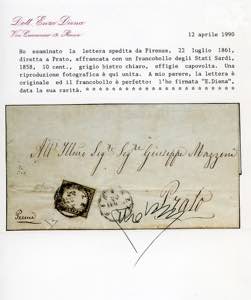 Dott. Enzo Diena
12 aprile 1990
Ho esaminato la lettera spedita da Firenze, 22 luglio 1861,
diretta a Prato, affrancata con un francobollo degli Stati Sardi,
1858, 10 cent., grigio bistro chiaro, effigie capovolta. Una
riproduzione fotografica è qui unita. A mio parere, la lettera è
originale ed il francobollo è perfetto: l'ho firmata "E.Diena",
data la sua rarità. * * * * * * * * * * * * * * * * * * * * * * *
All' Illmo Sigr Sigr Giuseppe Mazzoni
Prato